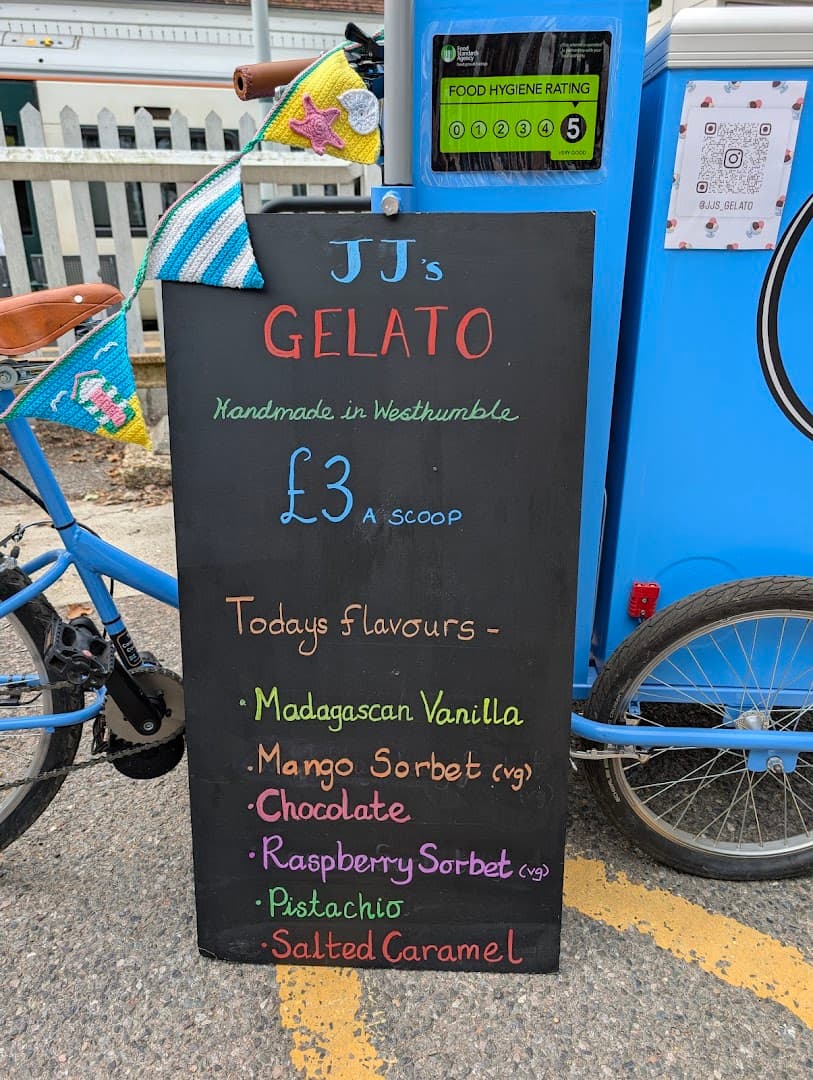 Food
Standards
Agency
FOOD HYGIENE RATING
0 1 2 3 4 5
VERY GOOD
@JJS_GELATO
JJ's
GELATO
Handmade in Westhumble
£3 A SCOOP
Todays flavours -
· Madagascan Vanilla
· Mango Sorbet (vg)
· Chocolate
· Raspberry Sorbet (vg)
· Pistachio
· Salted Caramel